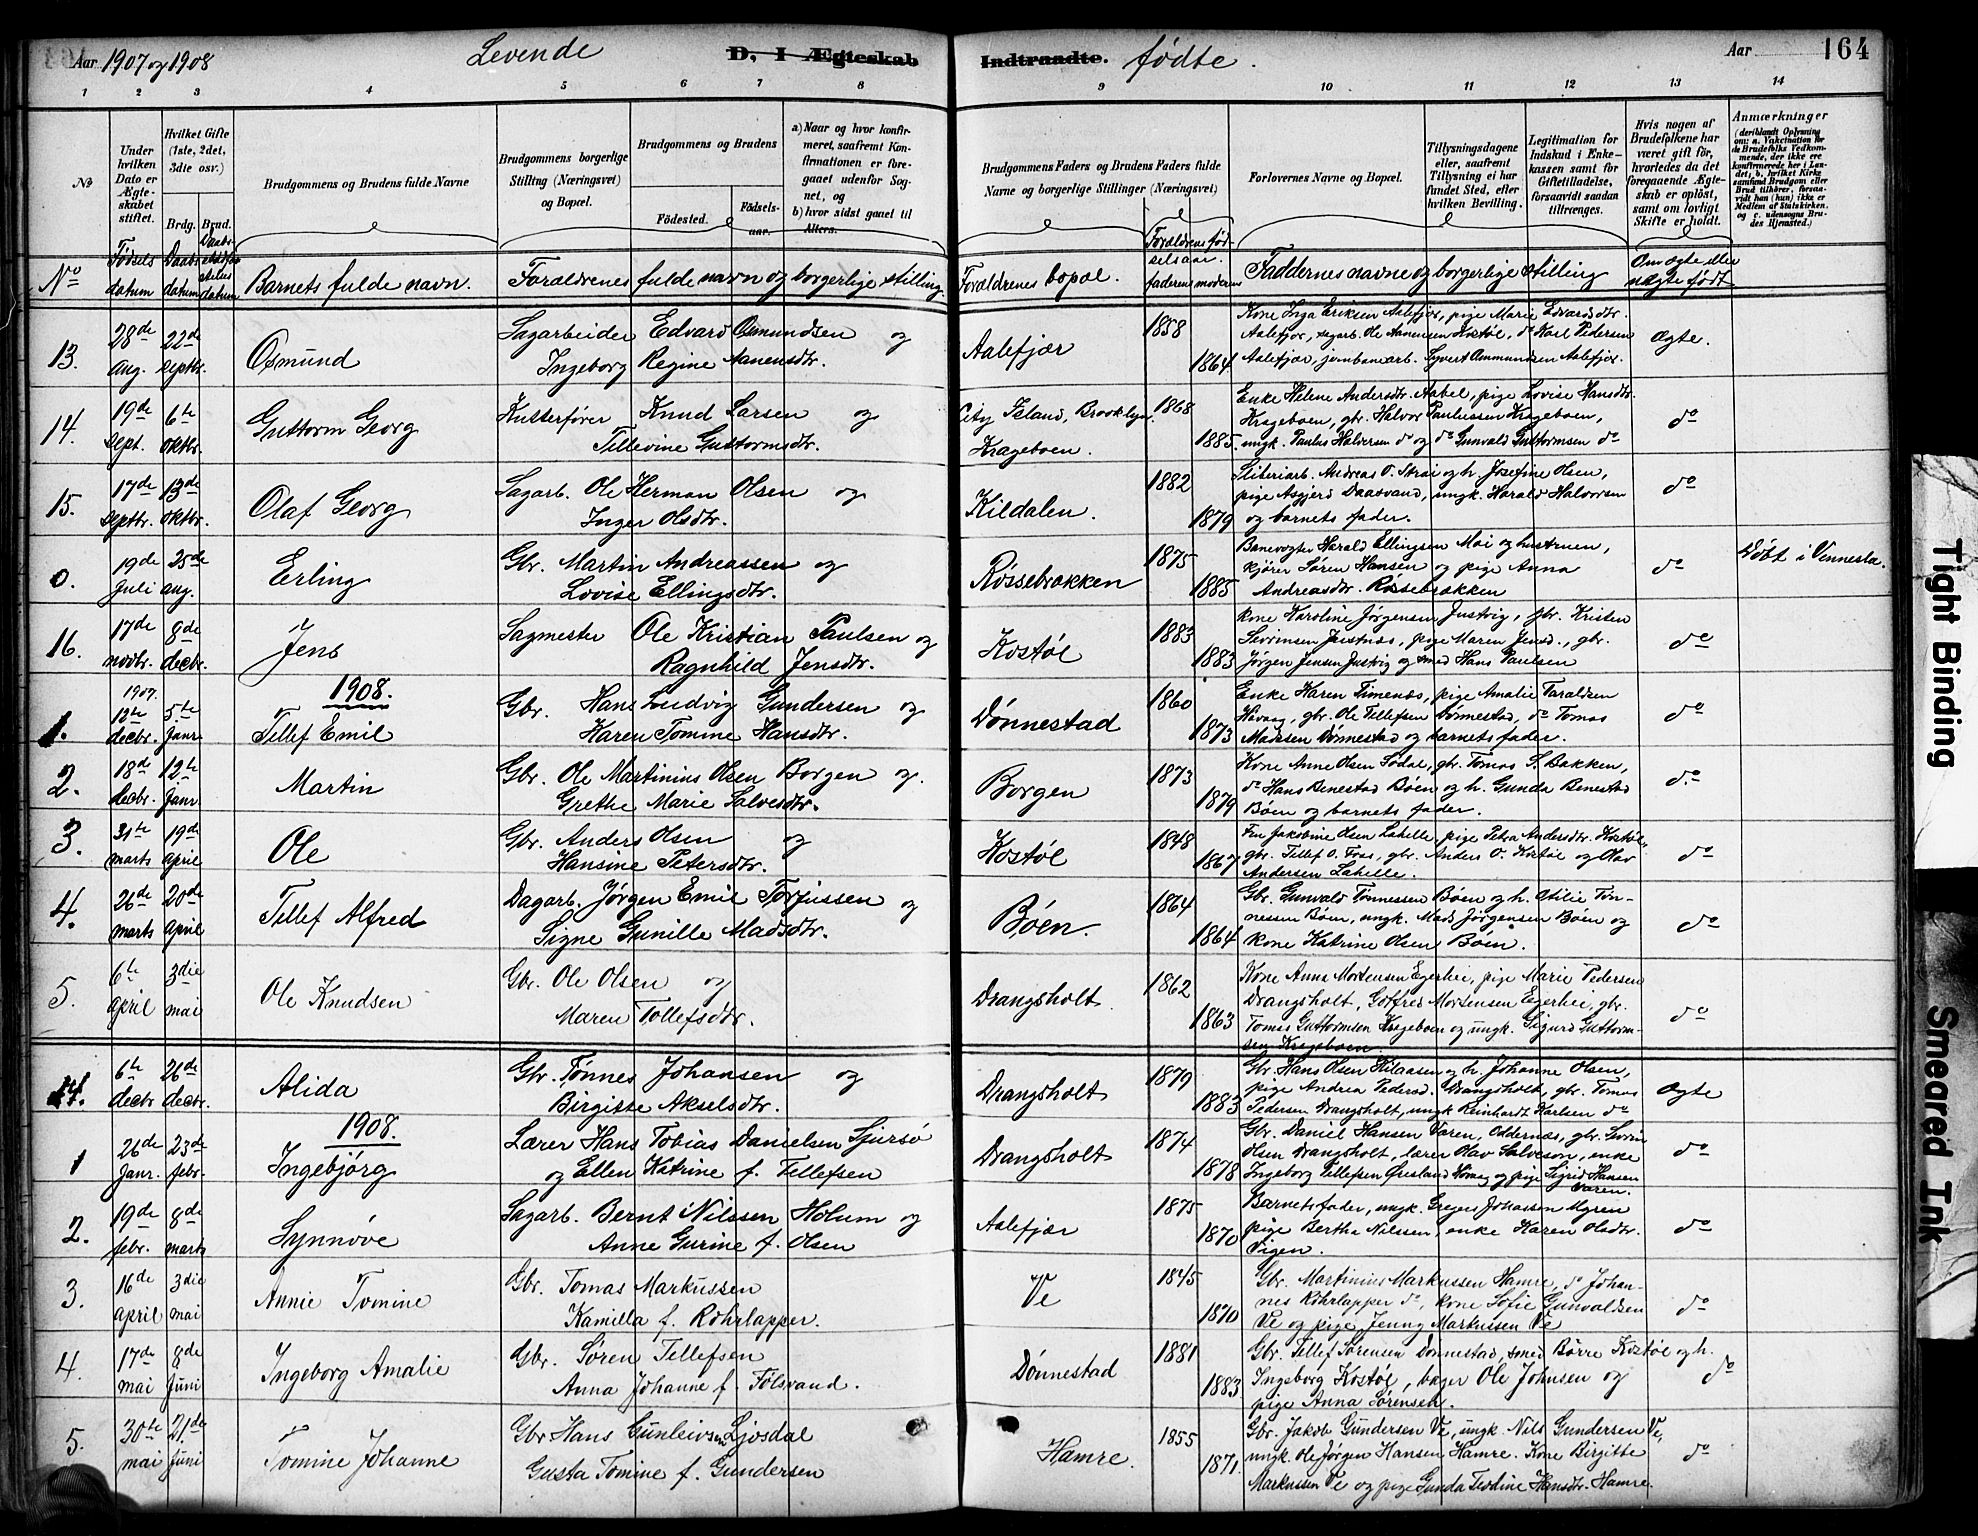 Aar 1907 og 1908 Levende D, I Ægteskab Indtraadte. fødte. Aar 164
1 2 3 4 5 6 7 8 9 10 11 12 13 14
No
Under hvilken Dato er Ægteskabet stiftet.
Hvilket Gifte (1ste, 2det, 3dte osv.)
Brdg. Brud.
Brudgommens og Brudens fulde Navne
Brudgommens borgerlige Stilling (Næringsvei) og Bopæl.
Brudgommens og Brudens
Fødested. Fødselsaar.
a) Naar og hvor konfirmeret, saafremt Konfirmationen er foregaaet udenfor Sognet, og
b) hvor sidst gaaet til Alters.
Brudgommens Faders og Brudens Faders fulde Navne og borgerlige Stillinger (Næringsvei)
Forlovernes Navne og Bopæl.
Tillysningsdagene eller, saafremt Tillysning ei har fundet Sted, efter hvilken Bevilling.
Legitimation for Indskud i Enkekassen samt for Giftetilladelse, forsaavidt saadan tiltrænges.
Hvis nogen af Brudefolkene har været gift før, hvorledes da det foregaaende Ægteskab er opløst, samt om lovligt Skifte er holdt.
Anmærkninger (deriblandt Oplysning om: a. Vakcination for de Brudefolks Vedkommende, der ikke ere konfirmerede her i Landet; b. hvilket Kirkesamfund Brudgom eller Brud tilhører, forsaavidt han (hun) ikke er Medlem af Statskirken, og c. udensogns Brudes Hjemsted.)
No Fødsels datum Daabs datum Barnets fulde navn. Forældrenes fulde navn og borgerlige stilling. Forældrenes bopæl. Forældrenes fødselsaar. faderens moderens Faddernes navne og borgerlige stilling Om ægte eller uægte født
13. 28de aug. 22de septbr. Osmund Sagarbeider Edvard Osmundsen og Ingeborg Regine Aanensdtr. Aalefjær 1858 1864 Kone Inga Eriksen Aalefjær, pige Marie Edvardsdtr.
Aalefjær, sagarb. Ole Aanensen Kostøl, do Karl Pedersen
Aalefjær, jernbanearb. Syvert Ommundsen Aalefjær. Ægte.
14. 19de sept. 6te oktbr. Guttorm Georg Kutterfører Knud Larsen og Tellevine Guttormsdtr. City Island, Brooklyn. Krageboen. 1868 1885. Enke Helene Andersdtr. Aabel, pige Lovise Hansdtr.
Krageboen, gbr. Halvor Paulussen Krageboen,
ungk. Paulus Halvorsen do og do Gunvald Guttormsen do do
15. 17de septbr. 13de oktbr. Olaf Georg Sagarb. Ole Herman Olsen og Inger Olsdtr. Kildalen. 1882 1879 Sliberiarb. Andreas O. Strai og h. Josefine Olsen,
pige Asgjerd Daasvand, ungk. Harald Halvorsen
og barnets fader. do
0. 19de juli 25de aug. Erling Gbr. Martin Andreassen og Lovise Ellingsdtr. Røssebrækken 1875 1885 Banevogter Harald Ellingsen Moi og hustruen,
kjører Søren Hansen og pige Anna
Andreasdtr. Røssebrækken do Døbt i Vennesla.
16. 17de novbr. 8de decbr. Jens Sagmester Ole Kristian Paulsen og Ragnhild Jensdtr. Kostøl 1883 1883 Kone Karoline Jørgensen Justvig, gbr. Kristen
Sevrinsen Justnæs, pige Maren Jensd., gbr.
Jørgen Jensen Justvig og smed Hans Paulsen do
1908.
1. 1907. 12te decbr. 5te janr. Tellef Emil Gbr. Hans Ludvig Gundersen og Karen Tomine Hansdtr. Dønnestad 1860 1873 Enke Karen Timenæs, pige Amalie Taraldsen
Haavaag, gbr. Ole Tellefsen Dønnestad, do Tomas
Madssen Dønnestad og barnets fader. do
2. 18de decbr. 12te janr. Martin Gbr. Ole Martinius Olsen Borgen og Grethe Marie Salvesdtr. Borgen 1873 1879 Kone Anne Olsen Fodal, gbr. Tomas S. Bakken,
do Hans Benestad Bøen og h. Gunda Benestad
Bøen og barnets fader. do
3. 31te marts 19de april Ole Gbr. Anders Olsen og Hansine Petersdtr. Kostøl 1848 1867 Fru Jakobine Olsen Lahelle, pige Petra Andersdtr. Kostøl,
gbr. Tellef O. Foss, gbr. Anders O. Kostøl og Olav
Andersen Lahelle. do
4. 26de marts 20de april Tellef Alfred Dagarb. Jørgen Emil Torjussen og Signe Gunille Madsdtr. Bøen. 1864 1864 Gbr. Gunvald Tønnessen Bøen og h. Otilie Tønnessen Bøen, ungk. Mads Jørgensen Bøen og
kone Katrine Olsen Bøen. do
5. 6te april 3die mai Ole Knudsen Gbr. Ole Olsen og Maren Tollefsdtr. Drangsholt 1862 1863 Kone Anna Mortensen Egerhei, pige Marie Pedersen
Drangsholt, Gotfred Mortensen Egerhei, gbr.
Tomas Guttormsen Krageboen og ungk. Sigurd Guttormsen Krageboen. do
14. 6te decbr 26de decbr. Alida Gbr. Tønnes Johansen og Birgitte Akselsdtr. Drangsholt 1879 1883 Gbr. Hans Olsen og h. Johanne Olsen,
pige Andrea Pedersd. Drangsholt, gbr. Tomas
Pedersen Drangsholt, ungk Reinhardt Karlsen do Ægte
1908.
1 26de janr. 23de febr. Ingebjørg Lærer Hans Tobias Danielsen Sjursø og Ellen Katrine f. Tellefsen Drangsholt 1874 1878 Gbr. Daniel Hansen Varen, Oddernæs, gbr. Sevrin
Olsen Drangsholt, lærer Olav Salveson, enke
Ingeborg Tellefsen Øvsland og pige Sigrid Hansen
Varen. do
2. 19de febr. 8de marts Synnøve Sagarb. Bernt Nilssen Holum og Anne Gurine f. Olsen Aalefjær 1875 1870 Barnets fader, ungk. Greger Johassen Myren
pige Bertha Nilssen, enke Karen Olsdtr.
Vigen. do
3. 16de april 3die mai Annie Tomine Gbr. Tomas Markussen Kamilla f. Röhrlapper. Ve 1845 1870 Gbr. Martinius Markussen Hamre, do Johannes Röhrlapper do, kone Sofie Gunvaldsen
Ve og pige Jenny Markussen Ve do
4. 17de mai 8de juni Ingeborg Amalie Gbr. Søren Tellefsen Anna Johanne f. Følsvand. Dønnestad 1881 1883 Gbr. Tellef Sørensen Dønnestad, smed Børre Kostøl og h.
Ingeborg Kostøl, bager Ole Johnsen og
pige Anna Sørensen. do
5. 30te mai 21de juni Tomine Johanne Gbr Hans Gunleivsen Ljosdal Gusta Tomine f. Gundersen Hamre. 1855 1871. Gbr. Jakob Gundersen Ve, ungk. Nils Gundersen Ve,
ungk. Ole Jørgen Hansen Hamre. Kone Birgitte
Markussen Ve og pige Gunda Teodine Hansdtr. Hamre. do
Tight Binding
Smeared Ink